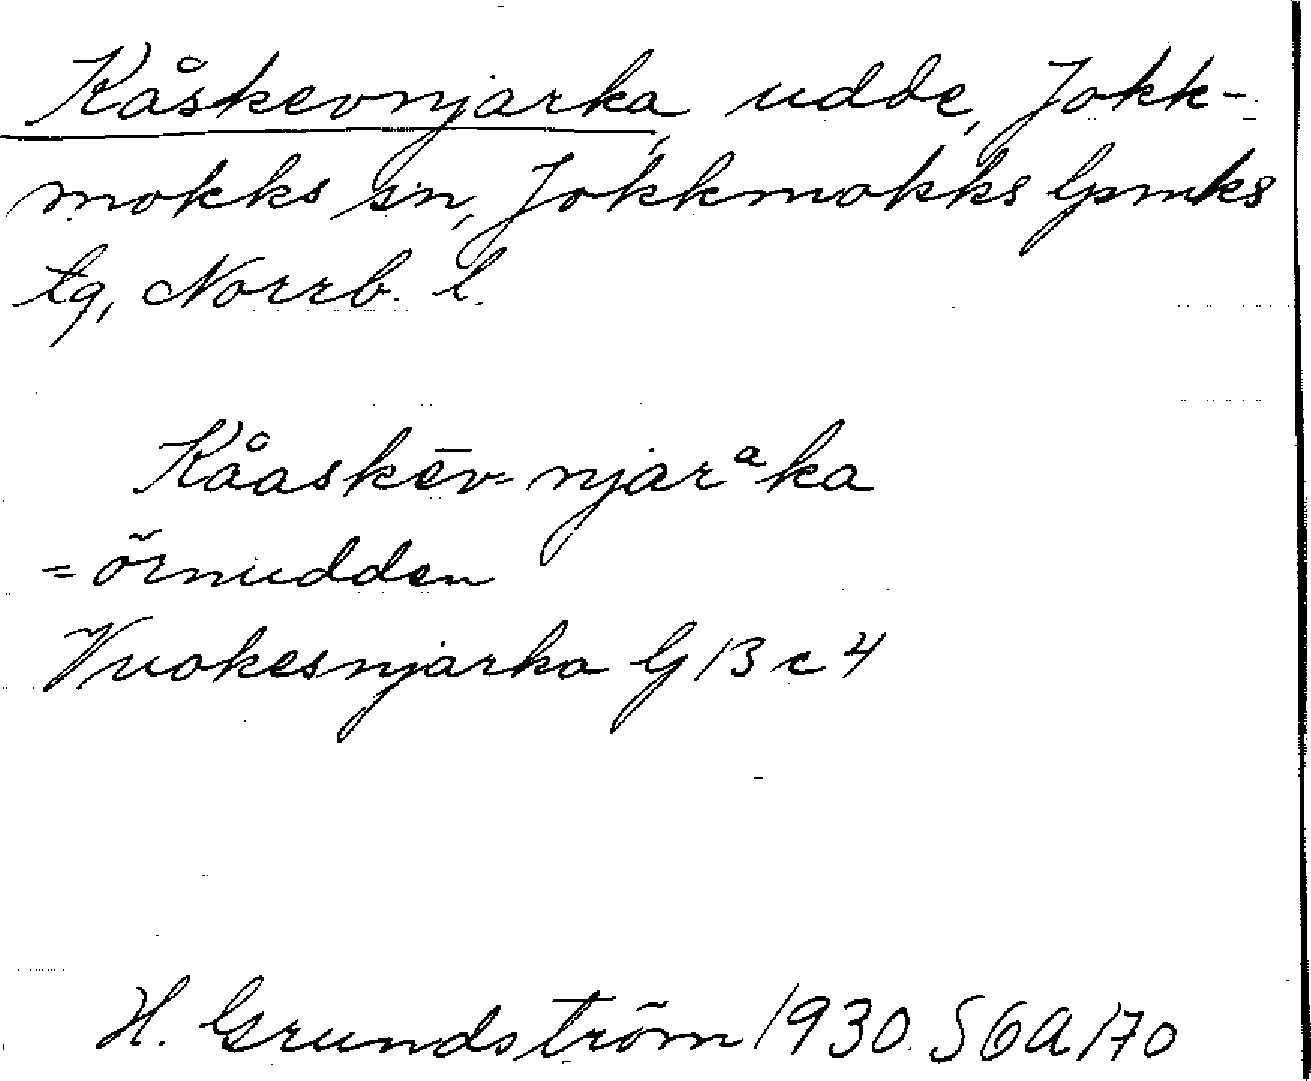 Kåskevnjarka, udde, Jokk-
mokks sn, Jokkmokks lpmks
tg, Norrb. l.
Kåaskēv-njarᵃka
= örnudden
Vuokesnjarka G 13 c 4
H. Grundström 1930. S6A170